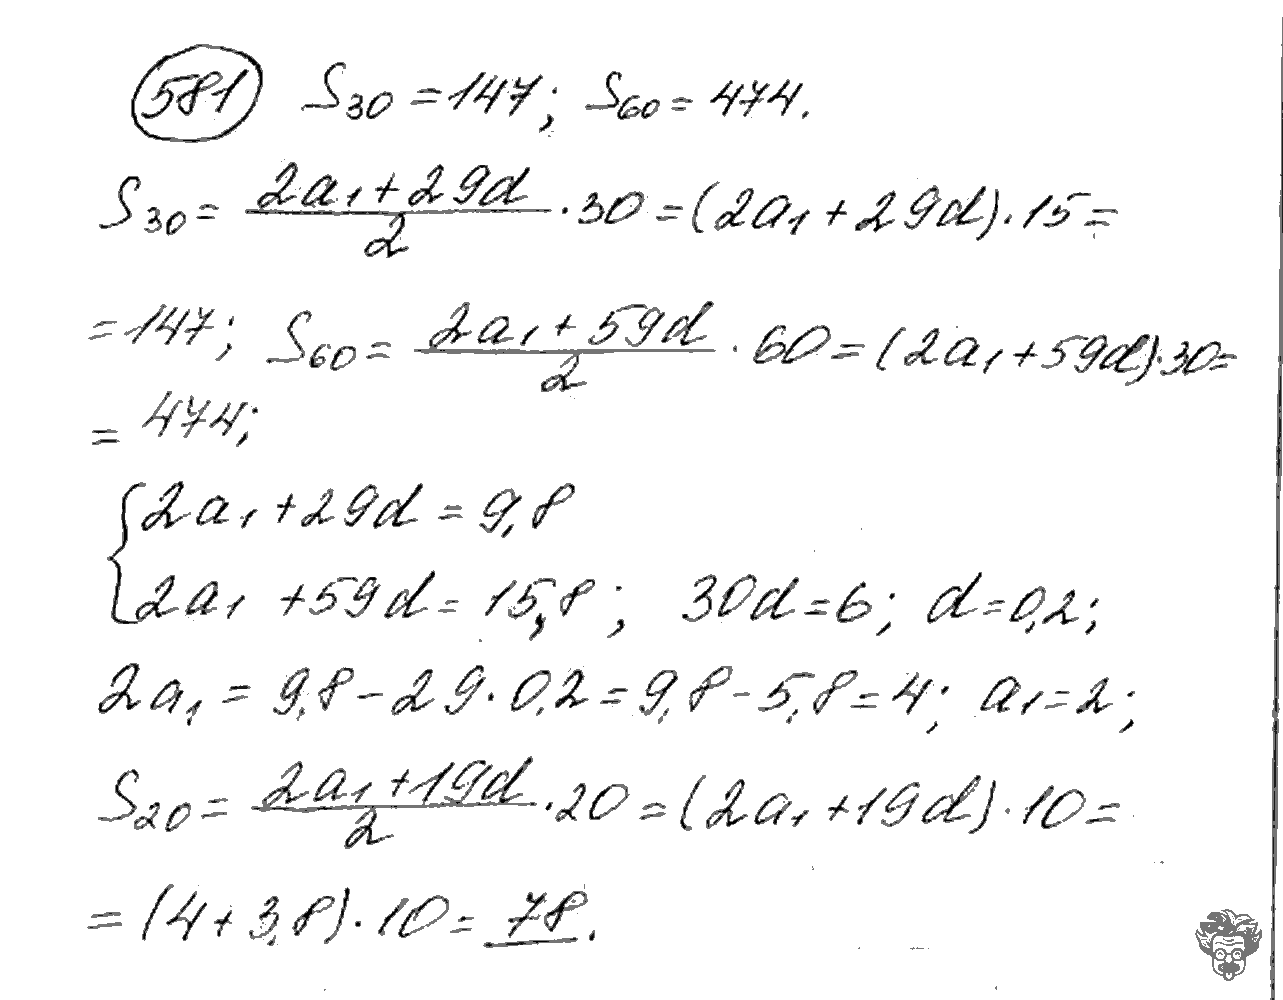 581 S₃₀ = 147; S₆₀ = 474.
S₃₀ = (2a₁ + 29d)/2 · 30 = (2a₁ + 29d) · 15 =
= 147; S₆₀ = (2a₁ + 59d)/2 · 60 = (2a₁ + 59d) · 30 =
= 474;
{ 2a₁ + 29d = 9,8
2a₁ + 59d = 15,8; 30d = 6; d = 0,2;
2a₁ = 9,8 - 29 · 0,2 = 9,8 - 5,8 = 4; a₁ = 2;
S₂₀ = (2a₁ + 19d)/2 · 20 = (2a₁ + 19d) · 10 =
= (4 + 3,8) · 10 = 78.